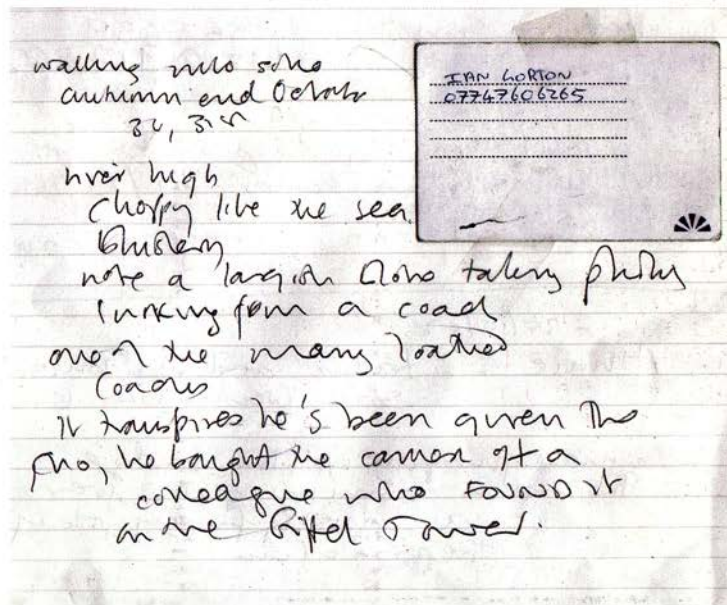 walking into soho
autumn end October
30, 31st
river high
choppy like the sea.
blustery
note a largish bloke taking photos
lurking from a coach
one of the many loathed
coaches
it transpires he's been given the
, he bought the camera off a
colleague who FOUND it
on the Eiffel Tower.
IAN LORTON
07747606265